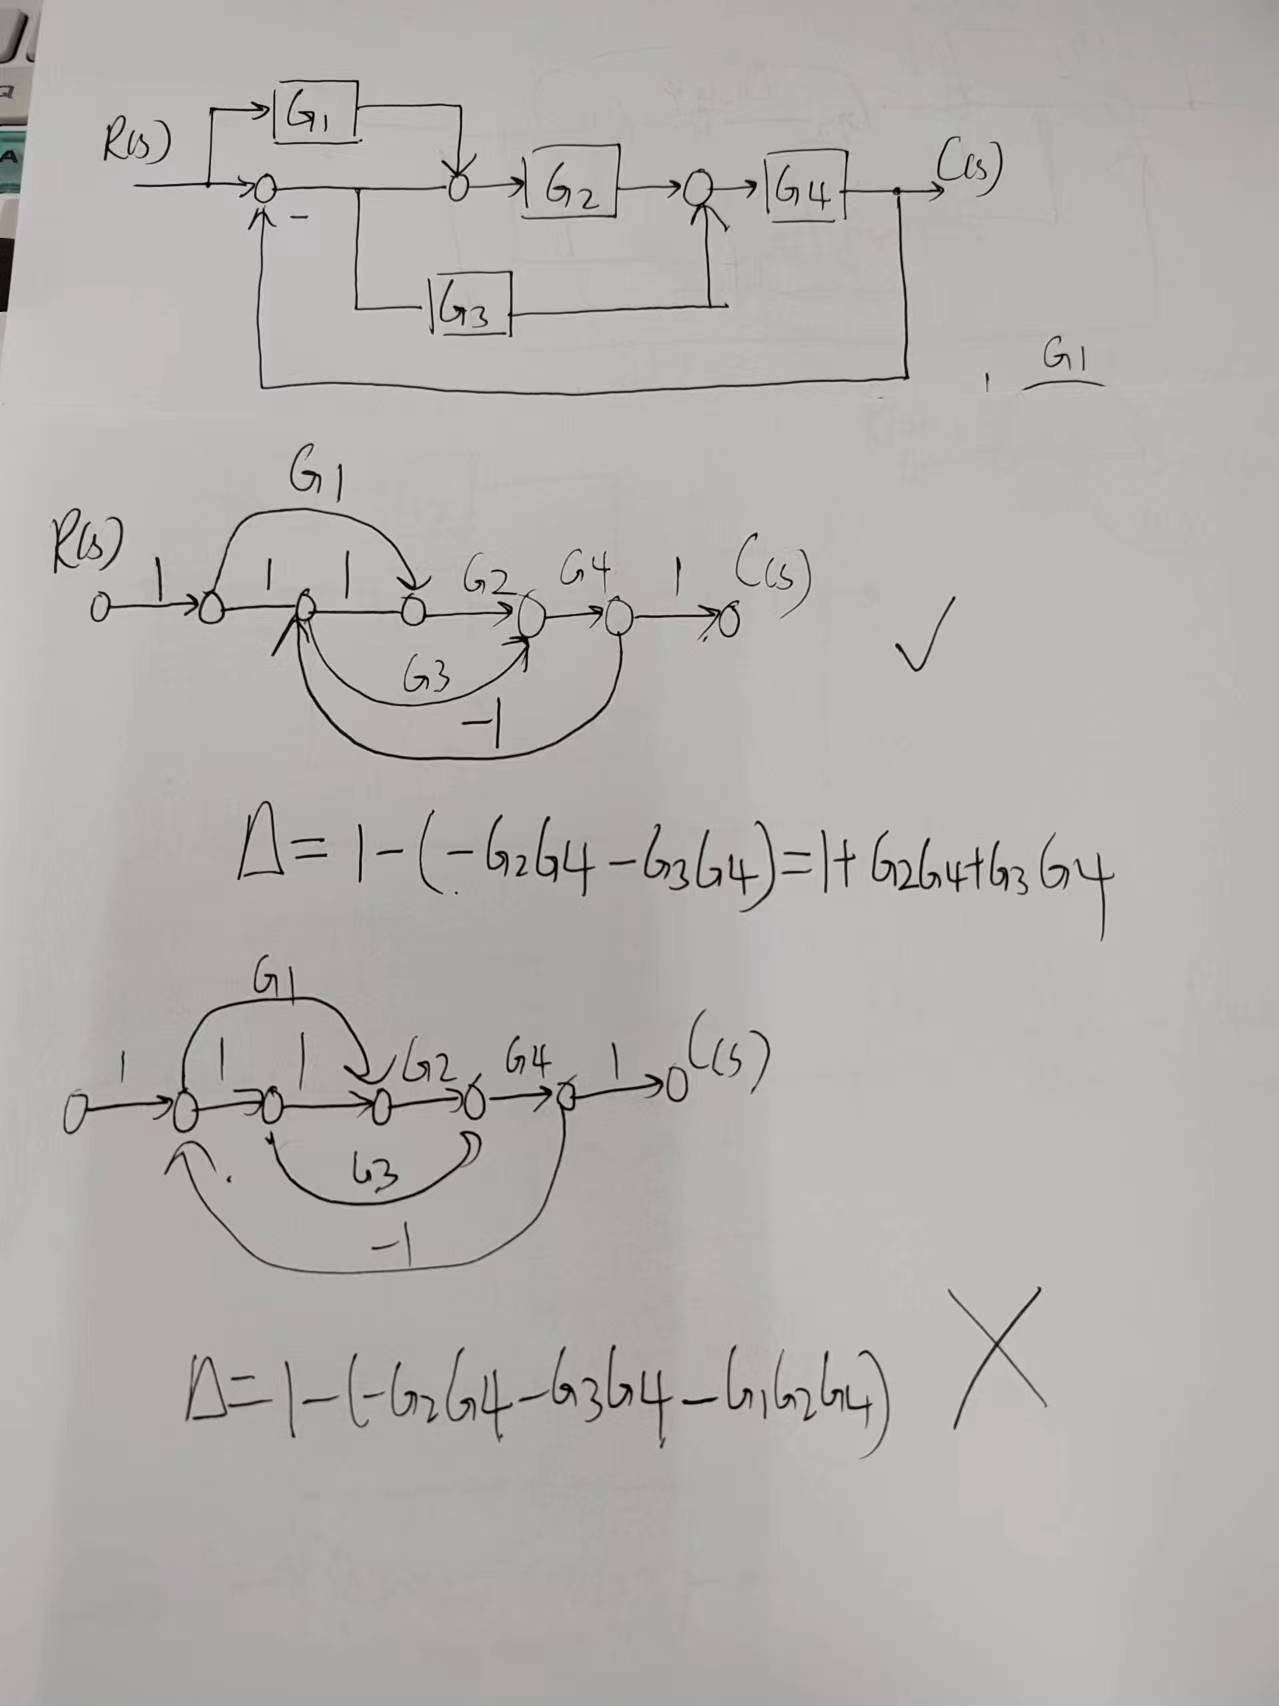 G1
R(s)
G2
G4
C(s)
-
G3
G1
G1
R(s)
1
1
1
G2
G4
1
C(s)
✓
G3
-1
Δ=1-(-G2G4-G3G4)=1+G2G4+G3G4
G1
1
1
1
G2
G4
1
C(s)
G3
-1
Δ=1-(-G2G4-G3G4-G1G2G4)
X